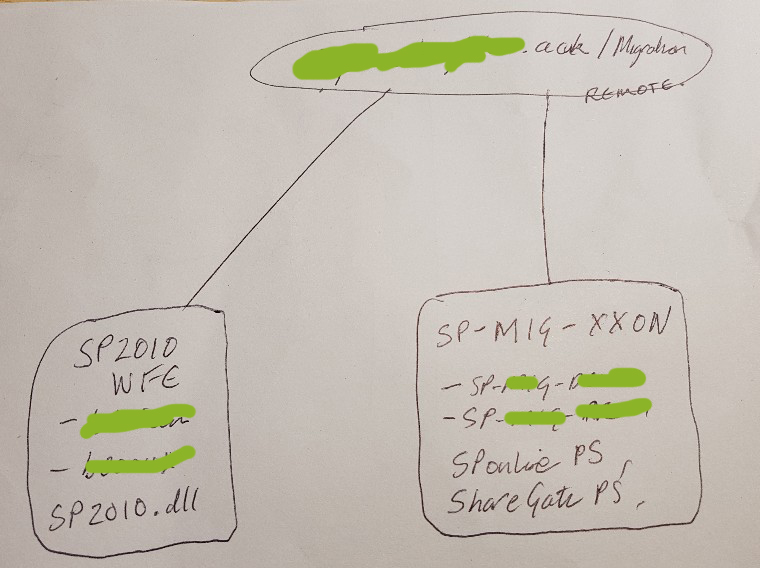 .ac.uk / Migration
REMOTE.
SP2010
WFE
-
-
SP2010.dll
SP-MIG-XXON
- SP-
- SP-
SPonline PS,
ShareGate PS,